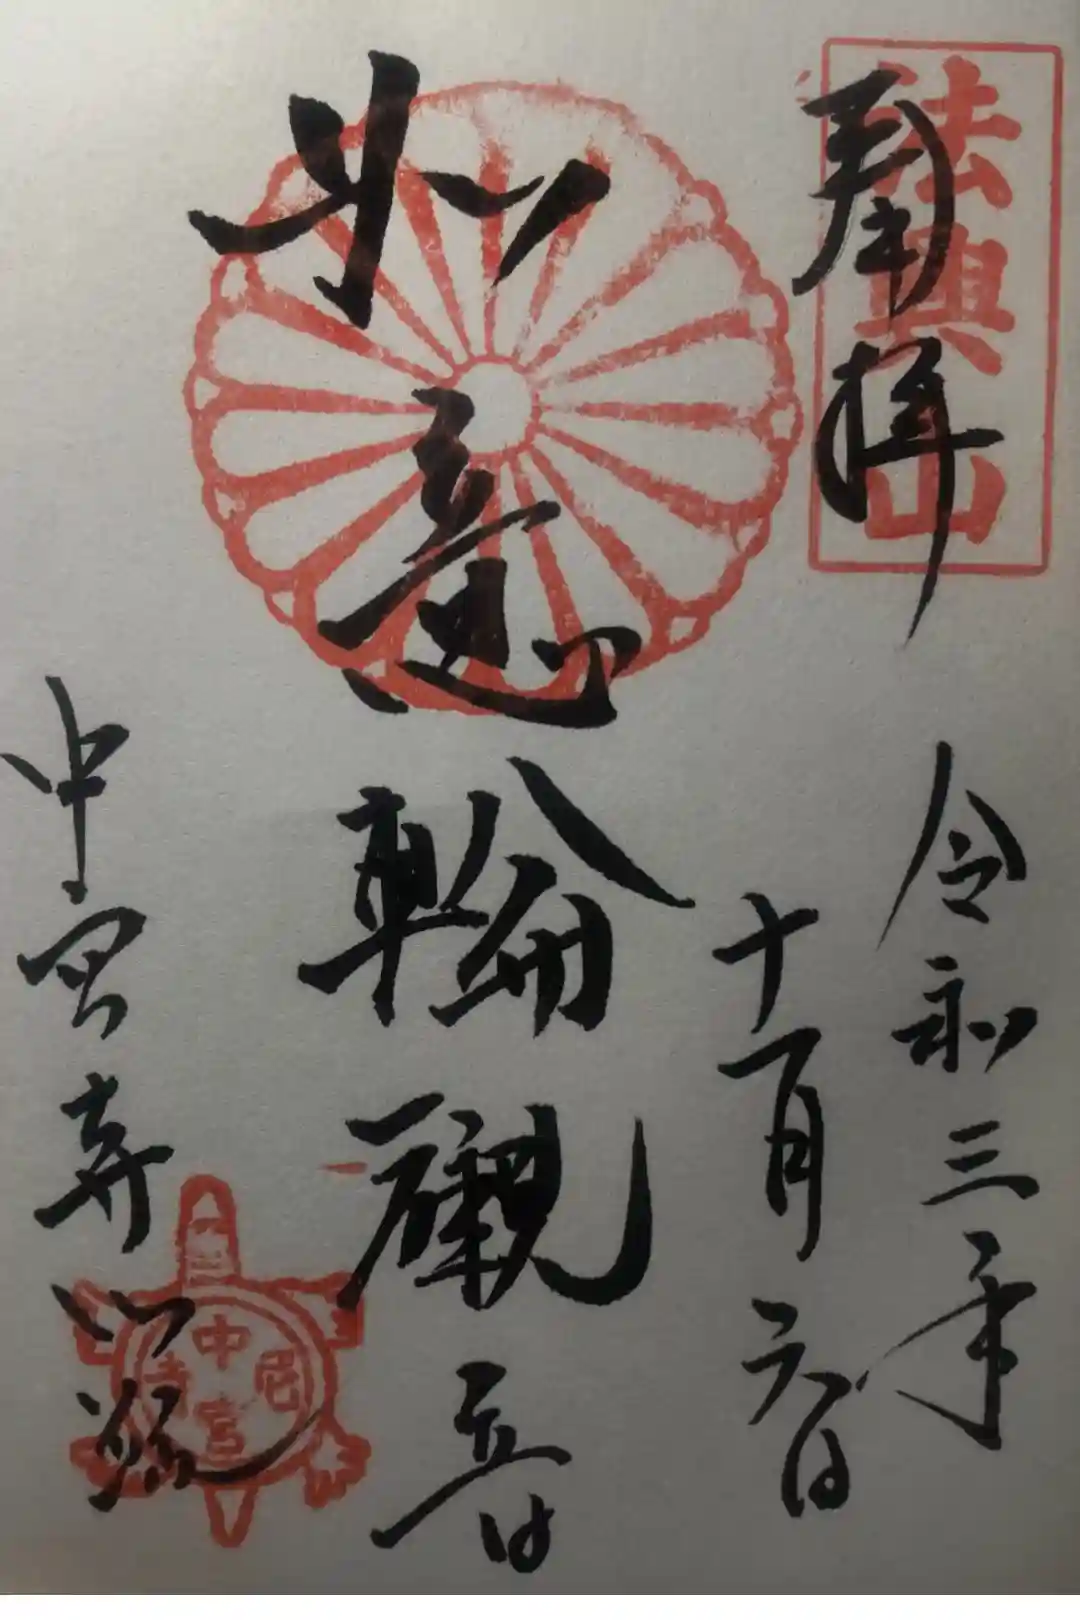 奉拝
法興山
令和三年
十一月六日
如意輪観音
中宮寺門跡
中宮尼寺